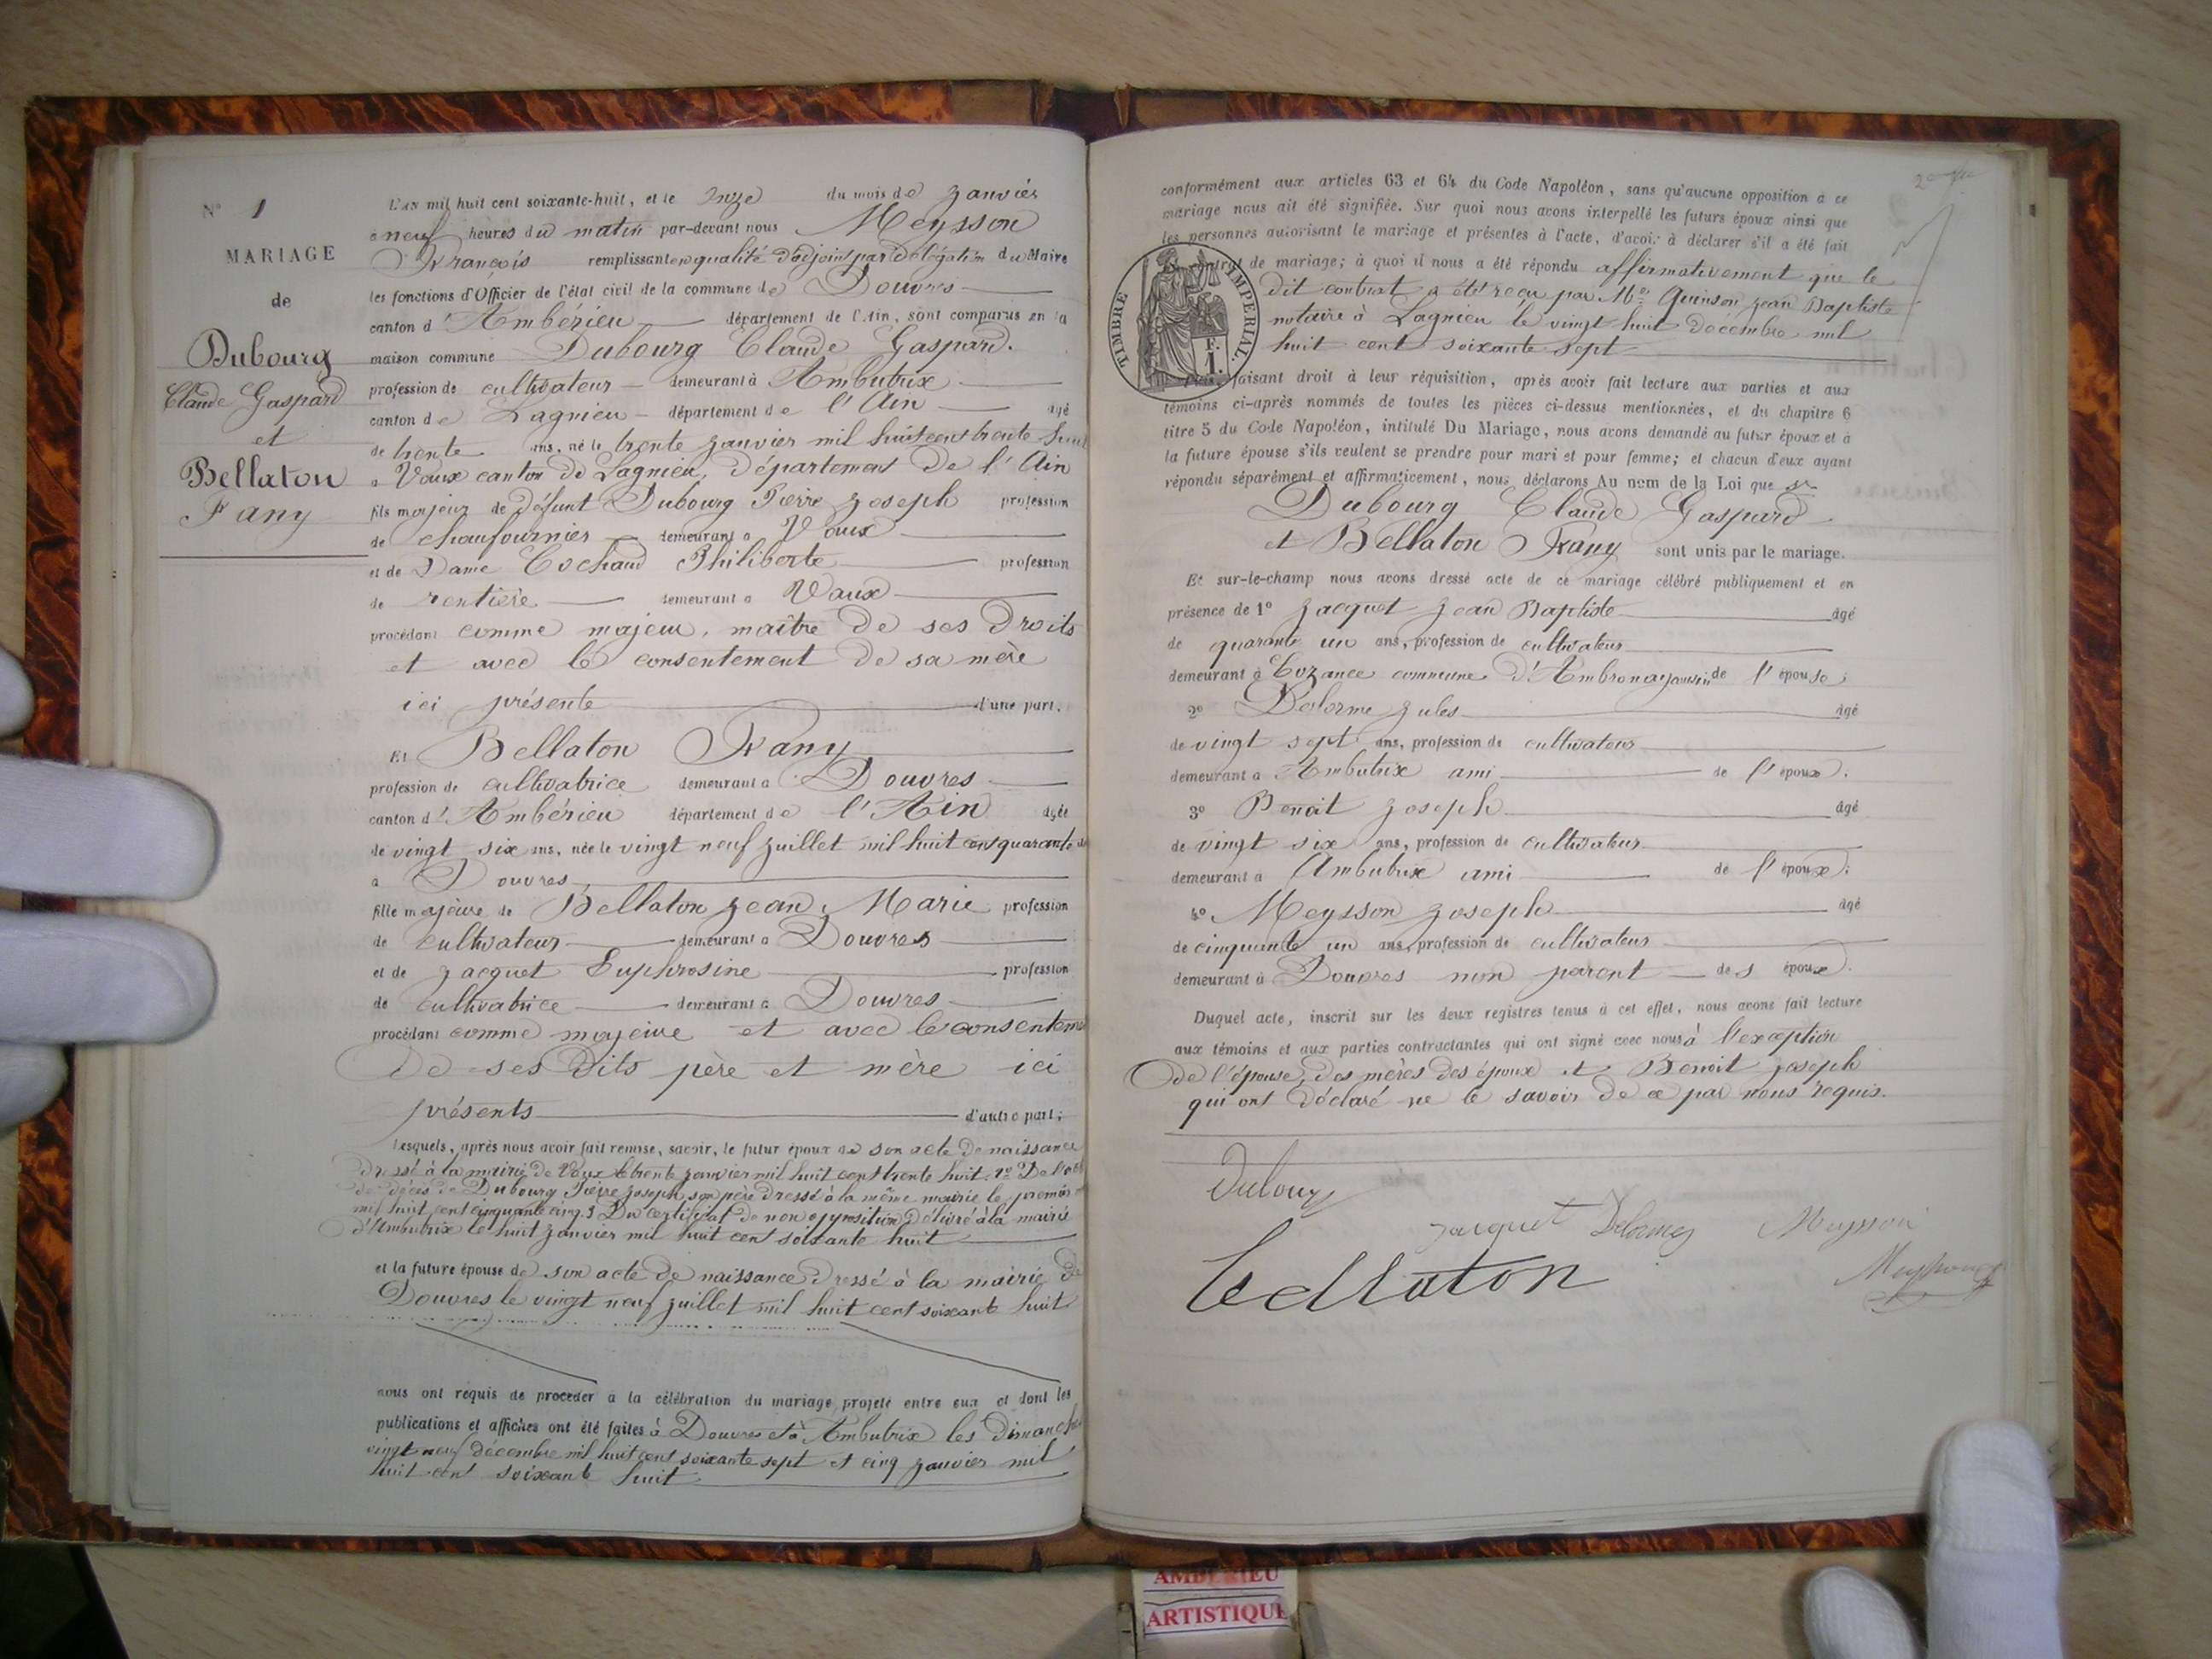 N° 1
MARIAGE
de
Dubourg
Claude Gaspard
et
Bellaton
Fany
L'an mil huit cent soixante-huit, et le onze du mois de janvier
à neuf heures du matin par-devant nous Meysson
François remplissant en qualité d'adjoint par délégation du Maire
les fonctions d'Officier de l'état civil de la commune de Douvres
canton d'Ambérieu département de l'Ain, sont comparus en la
maison commune Dubourg Claude Gaspard.
profession de cultivateur demeurant à Ambutrix
canton de Lagnieu département de l'Ain agé
de trente ans, né le trente janvier mil huit cent trente huit
à Vaux canton de Lagnieu, département de l'Ain
fils majeur de défunt Dubourg Pierre Joseph profession
de chaufournier demeurant à Vaux
et de Dame Cochaud Philiberte profession
de rentière demeurant à Vaux
procédant comme majeur, maître de ses droits
et avec le consentement de sa mère
ici présente d'une part.
Et Bellaton Fany
profession de cultivatrice demeurant à Douvres
canton d'Ambérieu département de l'Ain agée
de vingt six ans, née le vingt neuf juillet mil huit cent quarante
à Douvres
fille majeure de Bellaton Jean Marie profession
de cultivateur demeurant à Douvres
et de Jacquet Euphrosine profession
de cultivatrice demeurant à Douvres
procédant comme majeure et avec le consentem
de ses dits père et mère ici
présents d'autre part;
lesquels, après nous avoir fait remise, savoir, le futur époux de son acte de naissance
dressé à la mairie de Vaux le trente janvier mil huit cent trente huit. 2° De l'
de décès de Dubourg Pierre Joseph son père dressé à la même mairie le premier
mil huit cent cinquante cinq. 3 Du certificat de non opposition délivré à la mairie
d'Ambutrix le huit janvier mil huit cent soixante huit
et la future épouse de son acte de naissance dressé à la mairie de
Douvres le vingt neuf juillet mil huit cent soixante huit
nous ont requis de proceder à la célébration du mariage projeté entre eux et dont les
publications et affiches ont été faites à Douvres et à Ambutrix les Dimanche
vingt neuf décembre mil huit cent soixante sept et cinq janvier mil
huit cent soixante huit
conformément aux articles 63 et 64 du Code Napoléon, sans qu'aucune opposition à ce
mariage nous ait été signifiée. Sur quoi nous avons interpellé les futurs époux ainsi que
les personnes autorisant le mariage et présentes à l'acte, d'avoir à déclarer s'il a été fait
contrat de mariage; à quoi il nous a été répondu affirmativement que le
dit contrat a été reçu par Me Quinson Jean Baptiste
notaire à Lagnieu le vingt huit décembre mil
huit cent soixante sept
TIMBRE IMPERIAL.
F.
1.
faisant droit à leur réquisition, après avoir fait lecture aux parties et aux
témoins ci-après nommés de toutes les pièces ci-dessus mentionnées, et du chapitre 6
titre 5 du Code Napoléon, intitulé Du Mariage, nous avons demandé au futur époux et à
la future épouse s'ils veulent se prendre pour mari et pour femme; et chacun d'eux ayant
répondu séparément et affirmativement, nous déclarons Au nom de la Loi que
Dubourg Claude Gaspard
et Bellaton Fany sont unis par le mariage.
Et sur-le-champ nous avons dressé acte de ce mariage célébré publiquement et en
présence de 1° Jacquet Jean Baptiste agé
de quarante un ans, profession de cultivateur
demeurant à Cozance commune d'Ambronay cousin de l'épouse;
2° Delorme Jules agé
de vingt sept ans, profession de cultivateur
demeurant à Ambutrix ami de l'époux.
3° Benoit Joseph agé
de vingt six ans, profession de cultivateur
demeurant à Ambutrix ami de l'époux;
4° Meysson Joseph agé
de cinquante un ans, profession de cultivateur
demeurant à Douvres non parent des époux.
Duquel acte, inscrit sur les deux registres tenus à cet effet, nous avons fait lecture
aux témoins et aux parties contractantes qui ont signé avec nous à l'exception
de l'épouse, des mères des époux et Benoit Joseph
qui ont déclaré ne le savoir de ce par nous requis.
Dubourg
Jacquet Delorme Meysson
Bellaton
Meysson
AMBERIEU
ARTISTIQUE